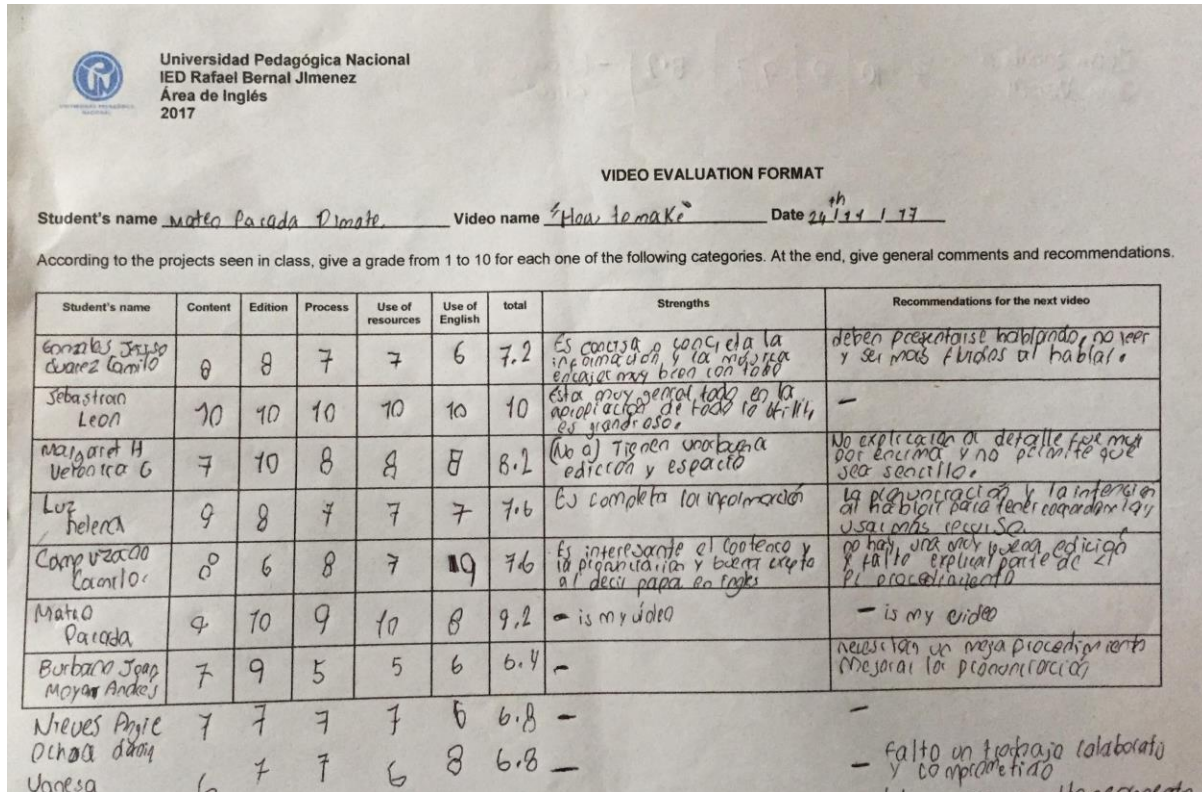 Universidad Pedagógica Nacional
IED Rafael Bernal JImenez
Área de Inglés
2017
UNIVERSIDAD PEDAGOGICA
NACIONAL
VIDEO EVALUATION FORMAT
Student's name Mateo Parada Dimate Video name "How to make" Date 24th / 11 / 17
According to the projects seen in class, give a grade from 1 to 10 for each one of the following categories. At the end, give general comments and recommendations.
Student's name Content Edition Process Use of resources Use of English total Strengths Recommendations for the next video
Suarez Camilo 8 8 7 7 6 7.2
Es concisa o concreta la
información y la
encajar muy bien con todo
deben presentarse hablando, no leer
y ser mas fluidos al hablar.
Sebastian
Leon 10 10 10 10 10 10
Esta muy genial todo en la
apropiación de todo lo
es grandioso.
-
Margaret H
Veronica G 7 10 8 8 8 8.2
(No a) Tienen una buena
edicción y espacio
No explicación a detalle fue muy
por encima y no permite que
sea sencillo.
Luz
helena 9 8 7 7 7 7.6
Es completa la información
La pronunciación y la intención
al hablar para tener
usar mas recurso.
Campuzano
Camilo 8 6 8 7 9 7.6
Es interesante el
la y buena
al decir papa en ingles
no hay una muy buena edición
y falto explicar parte de
el procedimiento
Mateo
Parada 9 10 9 10 8 9.2
- is my video
- is my video
Burbano Joan
Moyar Andres 7 9 5 5 6 6.4
-
necesitan un procedimiento
mejorar la pronunciación
Nieves Angie 7 7 7 7 6 6.8 - -
Ochoa
Vanesa 6 7 7 6 8 6.8 -
- falto un trabajo colaborato
y comprometido